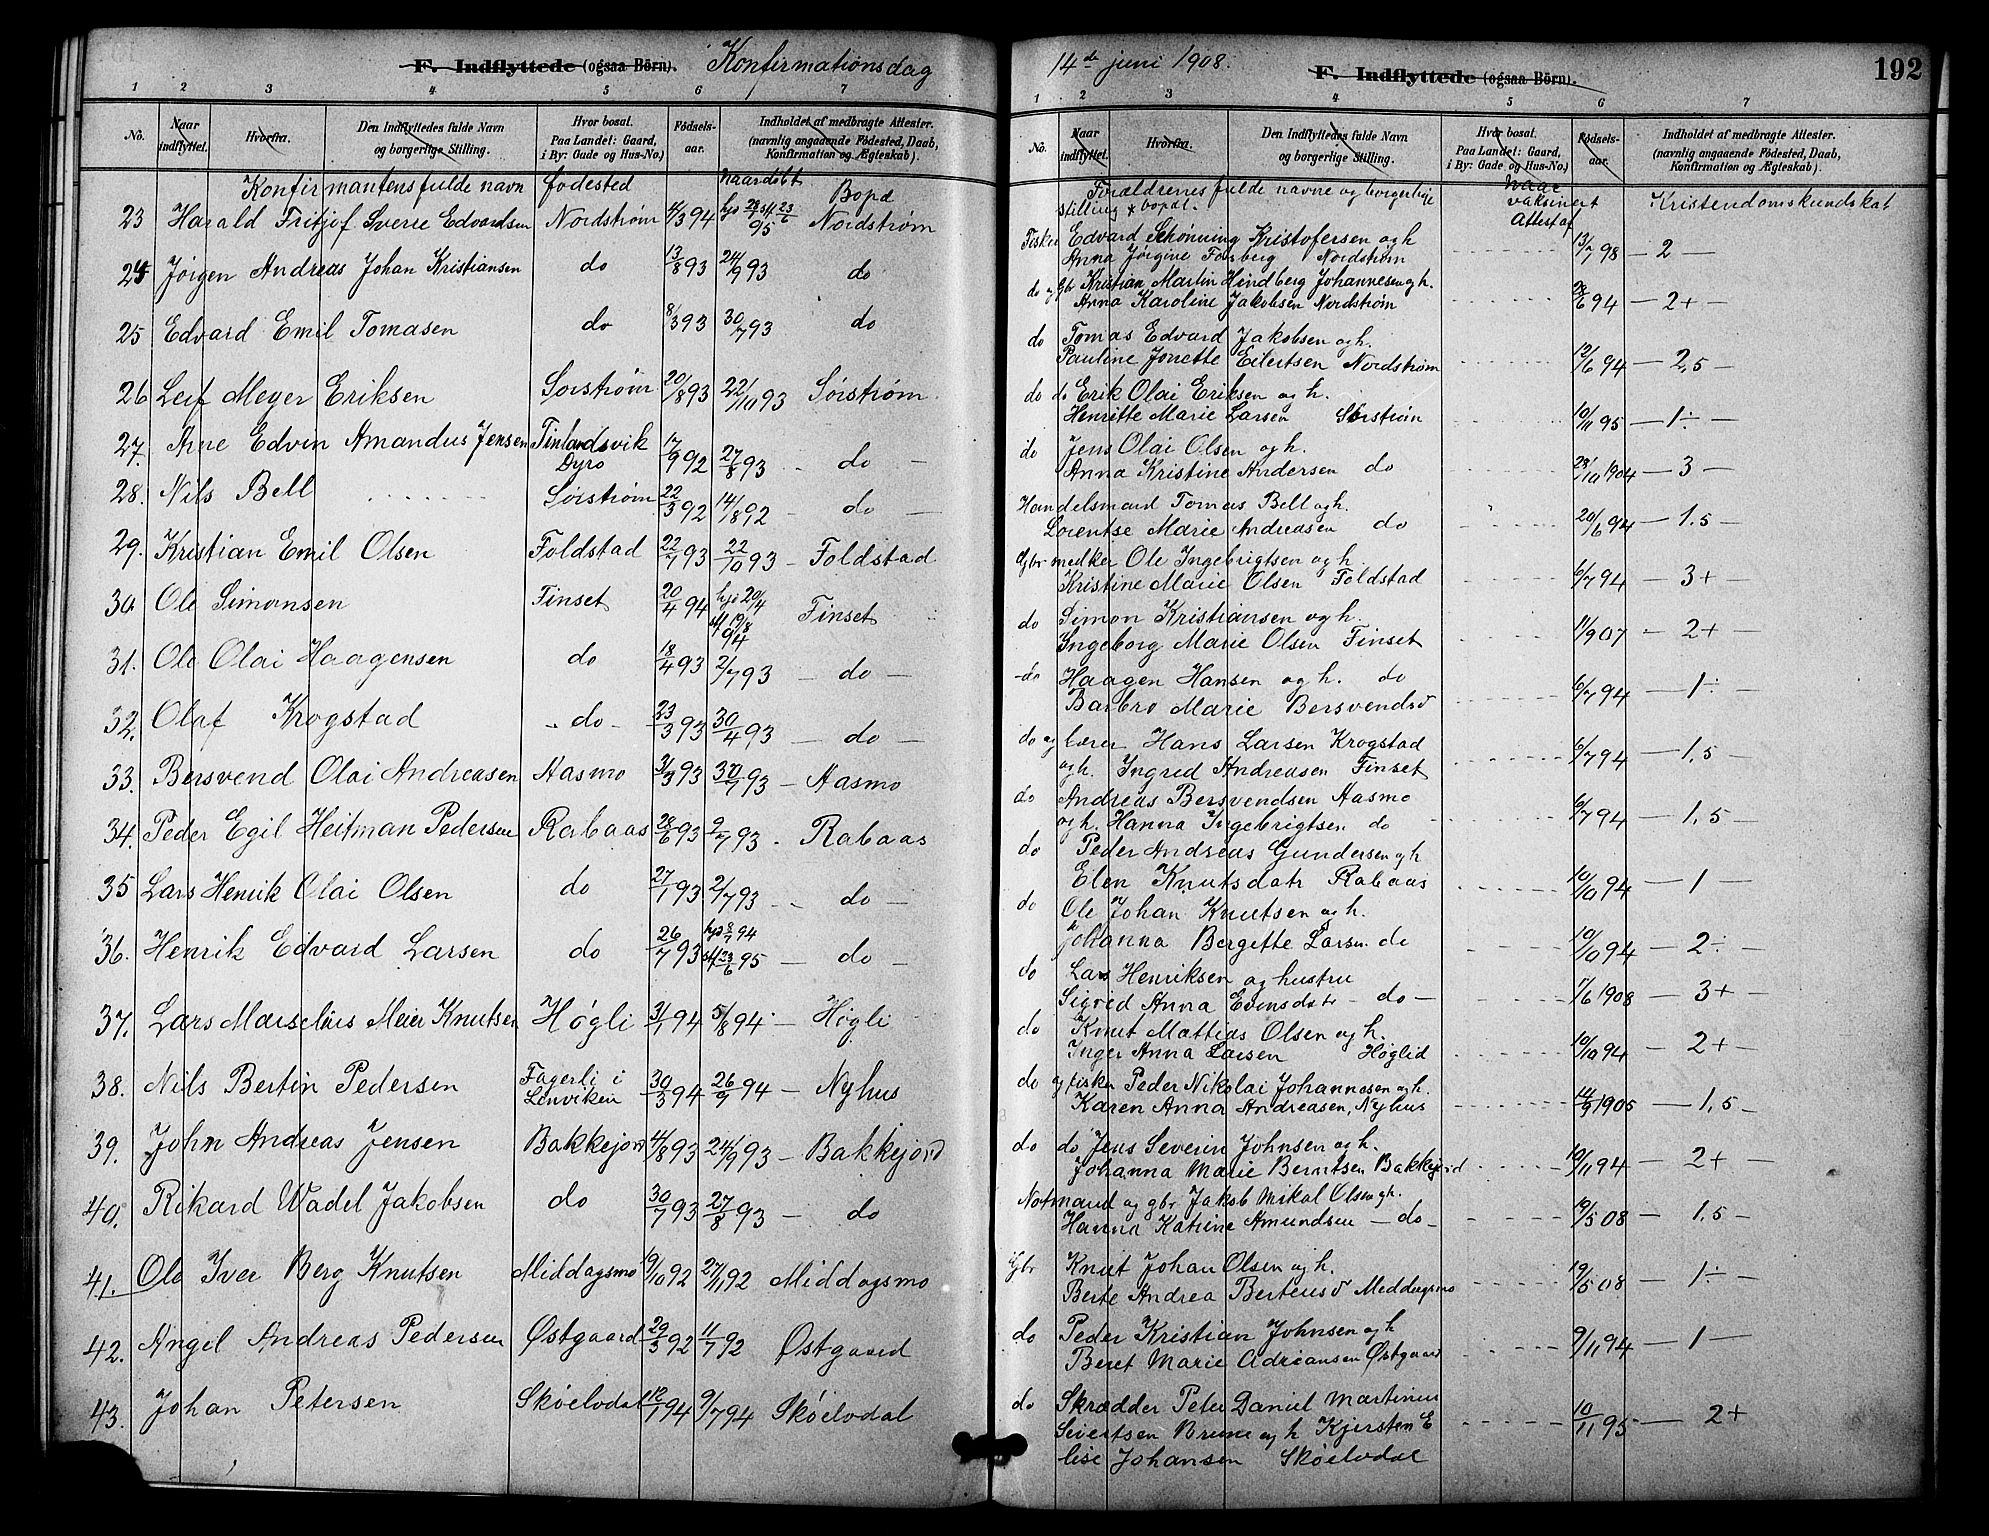 F. Indflyttede (ogsaa Börn). Konfirmationsdag
1 2 3 4 5 6 7
No. Naar indflyttet. Hvorfra. Den Indflyttedes fulde Navn og borgerlige Stilling. Hvor bosat. Paa Landet: Gaard, i By: Gade og Hus-No.) Fødsels-aar. Indholdet af medbragte Attester. (navnlig angaaende Födested, Daab, Konfirmation og Ægteskab).
Konfirmantens fulde navn fødested naar døbt Bopæl
23 Harald Fritjof Sverre Edvardsen Nordstrøm 4/3 94 95 Nordstrøm
24 Jørgen Andreas Johan Kristiansen do 13/8 93 24/9 93 do
25 Edvard Emil Tomasen do 8/3 93 30/7 93 do
26 Leif Meyer Eriksen Sørstrøm 20/8 93 22/10 93 Sørstrøm
27. Arne Edvin Amandus Jensen Finlandsvik Dyrø 17/9 92 27/8 93 - do -
28. Nils Bell Sørstrøm 22/3 92 14/8 92 - do -
29. Kristian Emil Olsen Foldstad 22/7 93 22/10 93 - Foldstad
30. Ole Simonsen Finset 20/4 94 hjd 20/4 stf 19/8 94 Finset
31. Ole Olai Haagensen do 18/4 93 2/7 93 - do -
32. Olaf Krogstad - do - 23/3 93 30/4 93 - do -
33. Bersvend Olai Andreasen Aasmo 3/3 93 30/7 93 - Aasmo
34. Peder Egil Heitman Pedersen Rabaas 28/6 93 9/7 93 - Rabaas
35 Lars Henrik Olai Olsen do 27/1 93 2/7 93 - do -
36. Henrik Edvard Larsen do 26/7 93 hjd 8/7 94 stf 23/6 95 - do -
37. Lars Marselius Meier Knutsen Høgli 3/1 94 5/8 94 - Høgli
38. Nils Bertin Pedersen Fagerli i Lenviken 30/3 94 26/9 94 - Nyhus
39. John Andreas Jensen Bakkejord 4/8 93 24/9 93 - Bakkejord
40. Rikard Wadel Jakobsen do 30/7 93 27/8 93 - do
41. Ole Iver Berg Knutsen Middagsmo 9/10 92 27/11 92 Middagsmo
42. Angel Andreas Pedersen Østgaard 29/3 92 11/7 92 Østgaard
43. Johan Petersen Skøelvdal 12/1 94 9/7 94 Skøelvdal
14de juni 1908. F. Indflyttede (ogsaa Börn). 192
1 2 3 4 5 6 7
No. Naar indflyttet. Hvorfra. Den Indflyttedes fulde Navn og borgerlige Stilling. Hvor bosat. Paa Landet: Gaard, i By: Gade og Hus-No.) Fødsels-aar. Indholdet af medbragte Attester. (navnlig angaaende Födested, Daab, Konfirmation og Ægteskab).
Forældrenes fulde navne og borgerlige stilling & bopæl. Naar vaksinert Attest af Kristendomskundskab
Fisker Edvard Schønning Kristofersen og h
Anna Jørgine Forsberg Nordstrøm 13/7 98 - 2 -
do og gbr Kristian Martin Hindberg Johannesen og h.
Anna Karoline Jakobsen Nordstrøm 28/6 94 - 2+ -
do Tomas Edvard Jakobsen og h.
Pauline Jonette Eilertsen Nordstrøm 12/6 94 - 2,5 -
do do Erik Olai Eriksen og h.
Henritte Marie Larsen Sørstrøm 10/11 95 - 1÷
do Jens Olai Olsen og h.
Anna Kristine Andersen do 23/10 1904 - 3 -
Handelsmand Tomas Bell og h.
Lorentse Marie Andreasen do 20/6 94 - 1.5 -
Gbr medker Ole Ingebrigtsen og h
Kristine Marie Olsen Foldstad 6/7 94 - 3+ -
do Simon Kristiansen og h.
Ingeborg Marie Olsen Finset 11/9 07 - 2+ -
do Haagen Hansen og h. do
Barbro Marie Bersvendsd 6/7 94 - 1÷ -
do og lærer Hans Larsen Krogstad
og h. Ingred Andreasen Finset 6/7 94 - 1.5 -
do Andreas Bersvendsen Aasmo
og h. Hanna Ingebrigtsen do 6/7 94 - 1,5 -
do Peder Andreas Gundersen og h
Elen Knutsdatr Rabaas 10/10 94 - 1 -
do Ole Johan Knutsen og h.
Johanna Bergette Larsen do 10/10 94 - 2÷
do Lars Henriksen og hustru
Sigred Anna Evensdatr - do - 7/6 1908 - 3+ -
do Knut Mattias Olsen og h.
Inger Anna Larsen Høglid 10/10 94 - 2+ -
do og fisker Peder Nikolai Johannesen og h.
Karen Anna Andreasen, Nyhus 14/9 1905 - 1,5 -
do do Jens Severin Johnsen og h.
Johanna Marie Berntsen Bakkejord 10/11 94 - 2+ -
Notmand og gbr Jakob Mikal Olsen og h.
Hanna Katrine Amundsen - do - 19/5 08 - 1.5 -
Gbr Knut Johan Olsen og h.
Berte Andrea Bertensd Meddagsmo 19/5 08 - 1÷ -
do Peder Kristian Johnsen og h
Beret Marie Adriansen Østgaard 9/11 94 - 1 -
do Skrædder Peter Daniel Martinus
Sivertsen Brune og h Kjersten E
lise Johansen Skøelvdal 10/11 95 - 2+